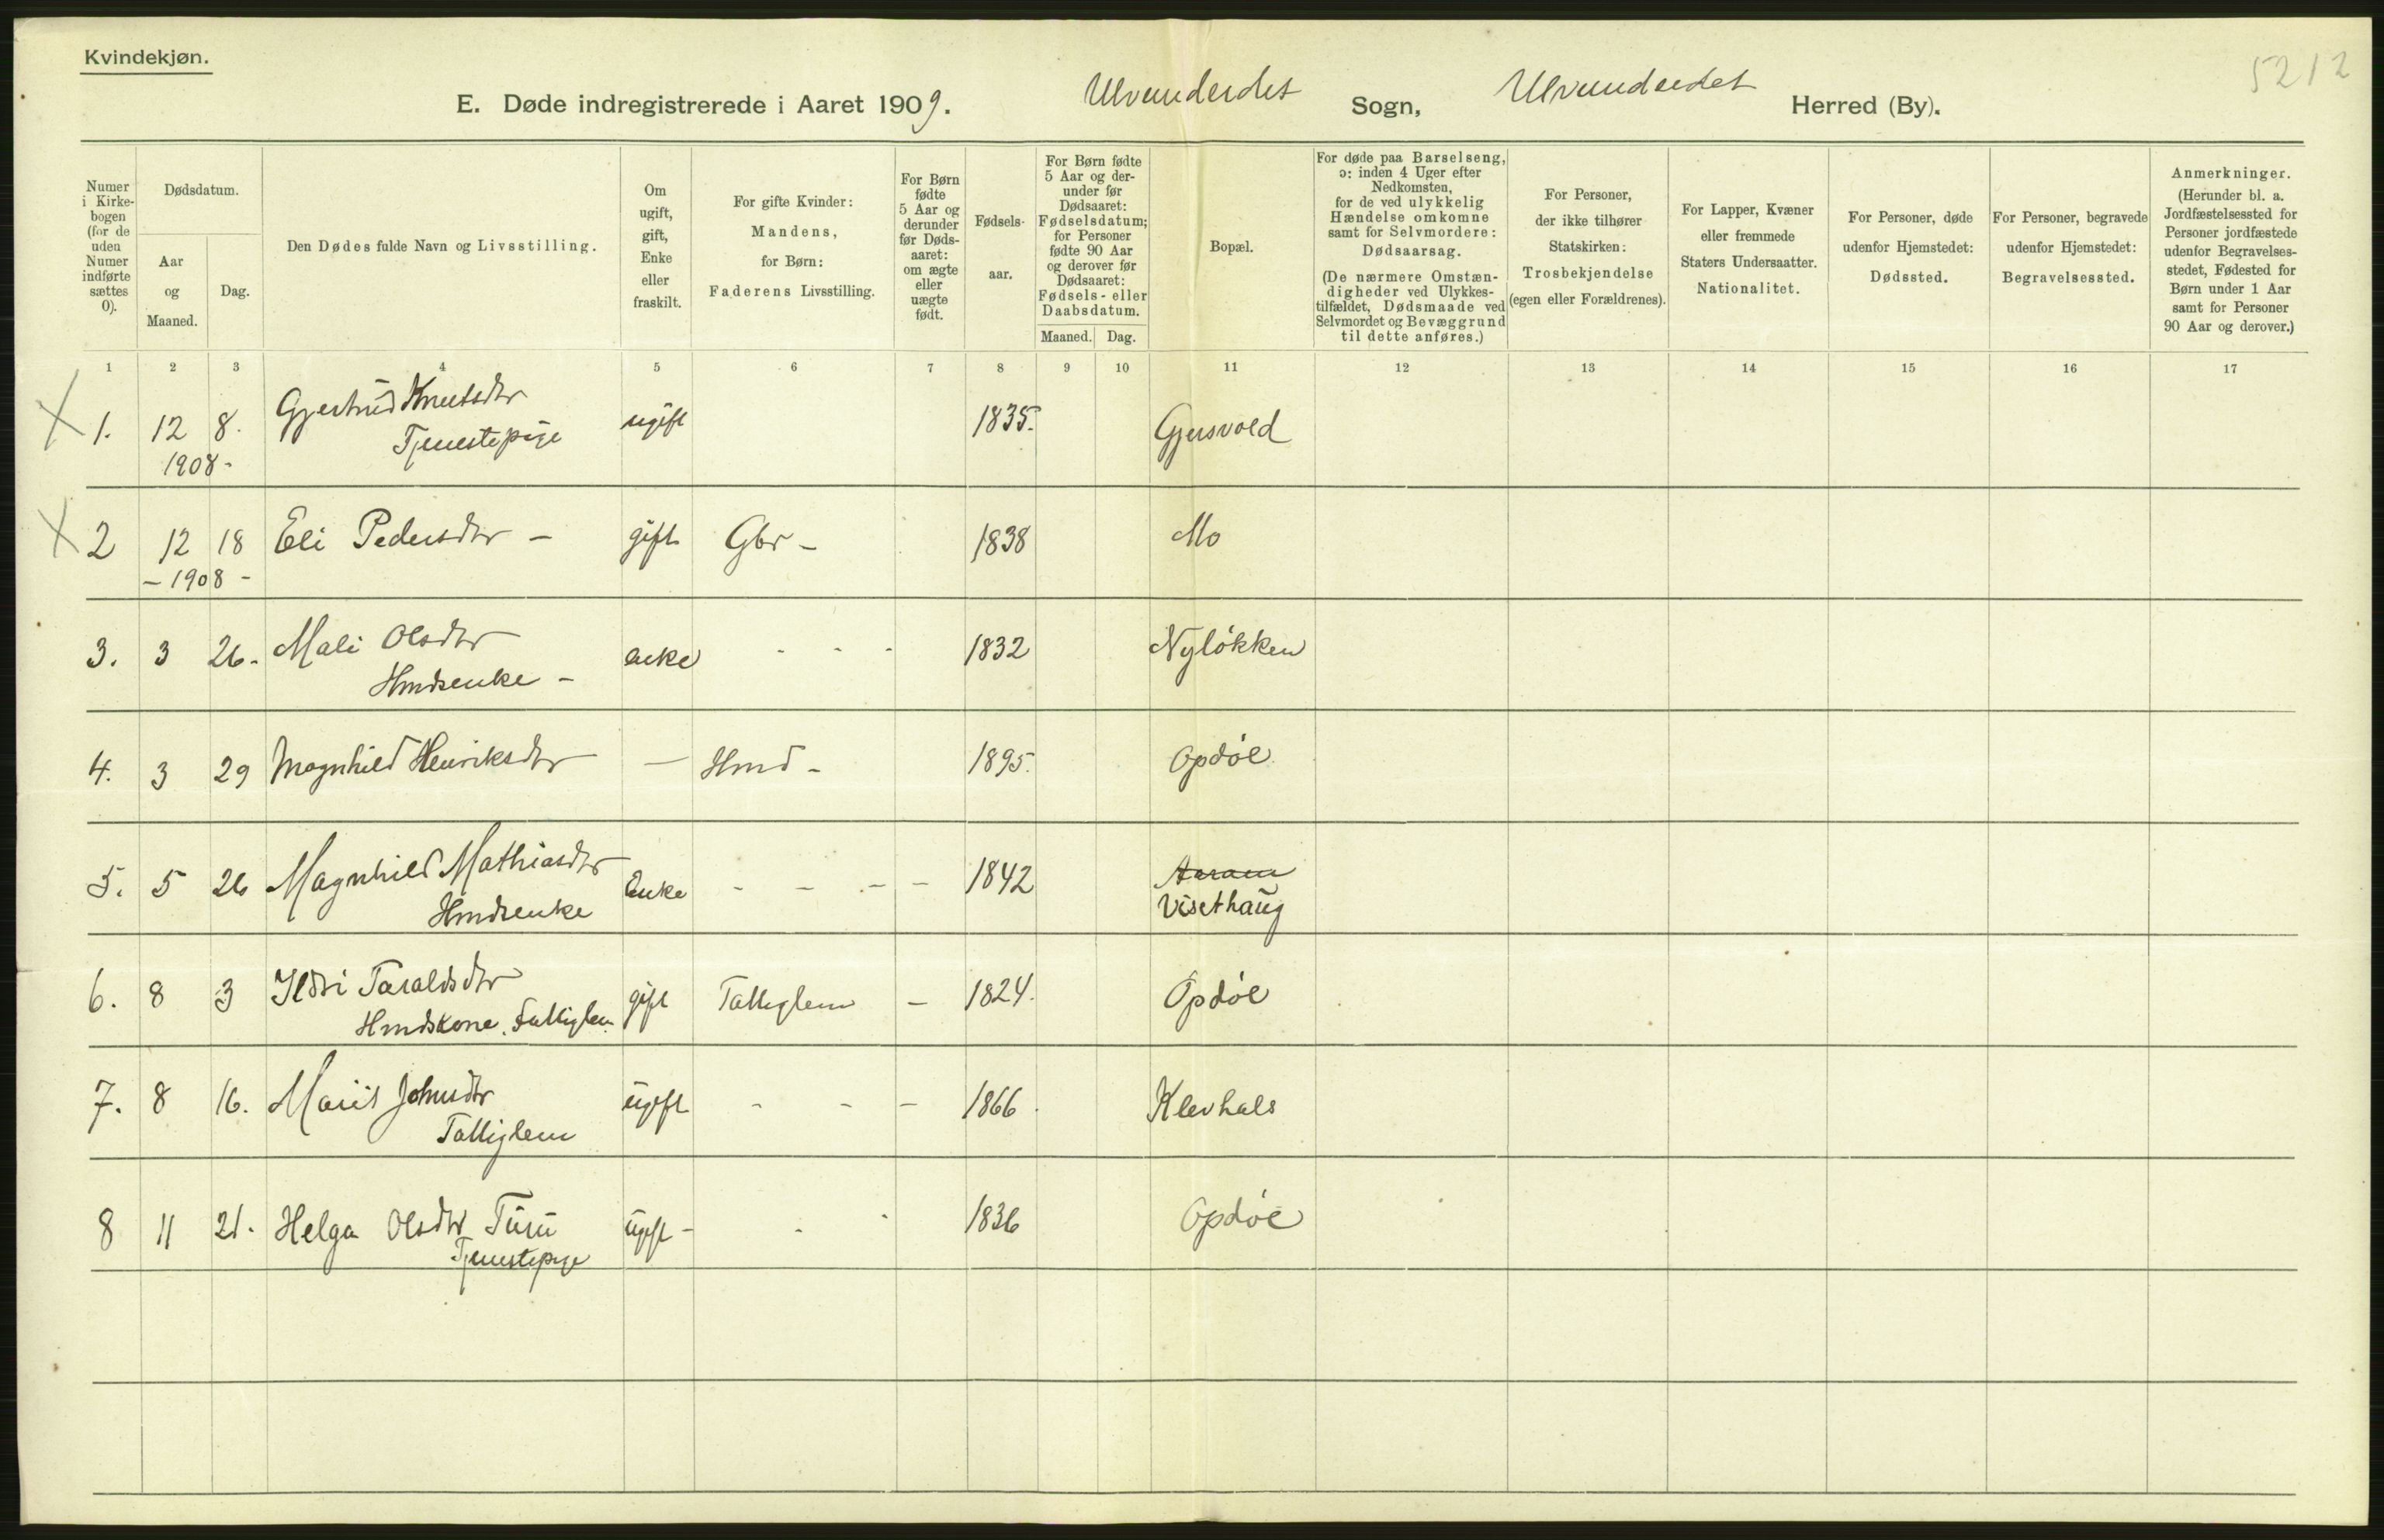 Kvindekjøn.
5212
E. Døde indregistrerede i Aaret 1909. Ulvundeidet Sogn, Ulvundeidet Herred (By).
Numer i Kirkebogen (for de uden Numer indførte sættes 0).
Dødsdatum.
Aar og Maaned.
Dag.
Den Dødes fulde Navn og Livsstilling.
Om ugift, gift, Enke eller fraskilt.
For gifte Kvinder: Mandens, for Børn: Faderens Livsstilling.
For Børn fødte 5 Aar og derunder før Dødsaaret: om ægte eller uægte født.
Fødselsaar.
For Børn fødte 5 Aar og derunder før Dødsaaret: Fødselsdatum; for Personer fødte 90 Aar og derover før Dødsaaret: Fødsels- eller Daabsdatum.
Maaned. Dag.
Bopæl.
For døde paa Barselseng, ɔ: inden 4 Uger efter Nedkomsten, for de ved ulykkelig Hændelse omkomne samt for Selvmordere: Dødsaarsag.
(De nærmere Omstændigheder ved Ulykkestilfældet, Dødsmaade ved Selvmordet og Bevæggrund til dette anføres.)
For Personer, der ikke tilhører Statskirken: Trosbekjendelse (egen eller Forældrenes).
For Lapper, Kvæner eller fremmede Staters Undersaatter. Nationalitet.
For Personer, døde udenfor Hjemstedet: Dødssted.
For Personer, begravede udenfor Hjemstedet: Begravelsessted.
Anmerkninger.
(Herunder bl. a. Jordfæstelsessted for Personer jordfæstede udenfor Begravelsesstedet, Fødested for Børn under 1 Aar samt for Personer 90 Aar og derover.)
1 2 3 4 5 6 7 8 9 10 11 12 13 14 15 16 17
X 1. 12 8. Gjertrud Knutsdtr ugift 1835. Gjersvold
1908- Tjenestepige
X 2 12 18 Eli Pedersdtr - gift Gbr - 1838 Mo
- 1908 -
3. 3 26. Mali Olsdtr enke - - - 1832 Nyløkken
Hmdsenke -
4. 3 29 Magnhild Henriksdtr - Hmd - 1895. Opdøl
5. 5 26 Magnhild Mathiasdtr Enke - - - - 1842 Aaram
Hmdsenke Visethaug
6. 8 3 Ildri Taraldsdtr gift Fattiglem - 1824. Opdøl
Hmdskone. Fattiglem
7. 8 16. Marit Johnsdtr ugift - - - 1866. Klevhals
Fattiglem
8 11 21. Helga Olsdtr ugift - - - 1836 Opdøl
Tjenestepige